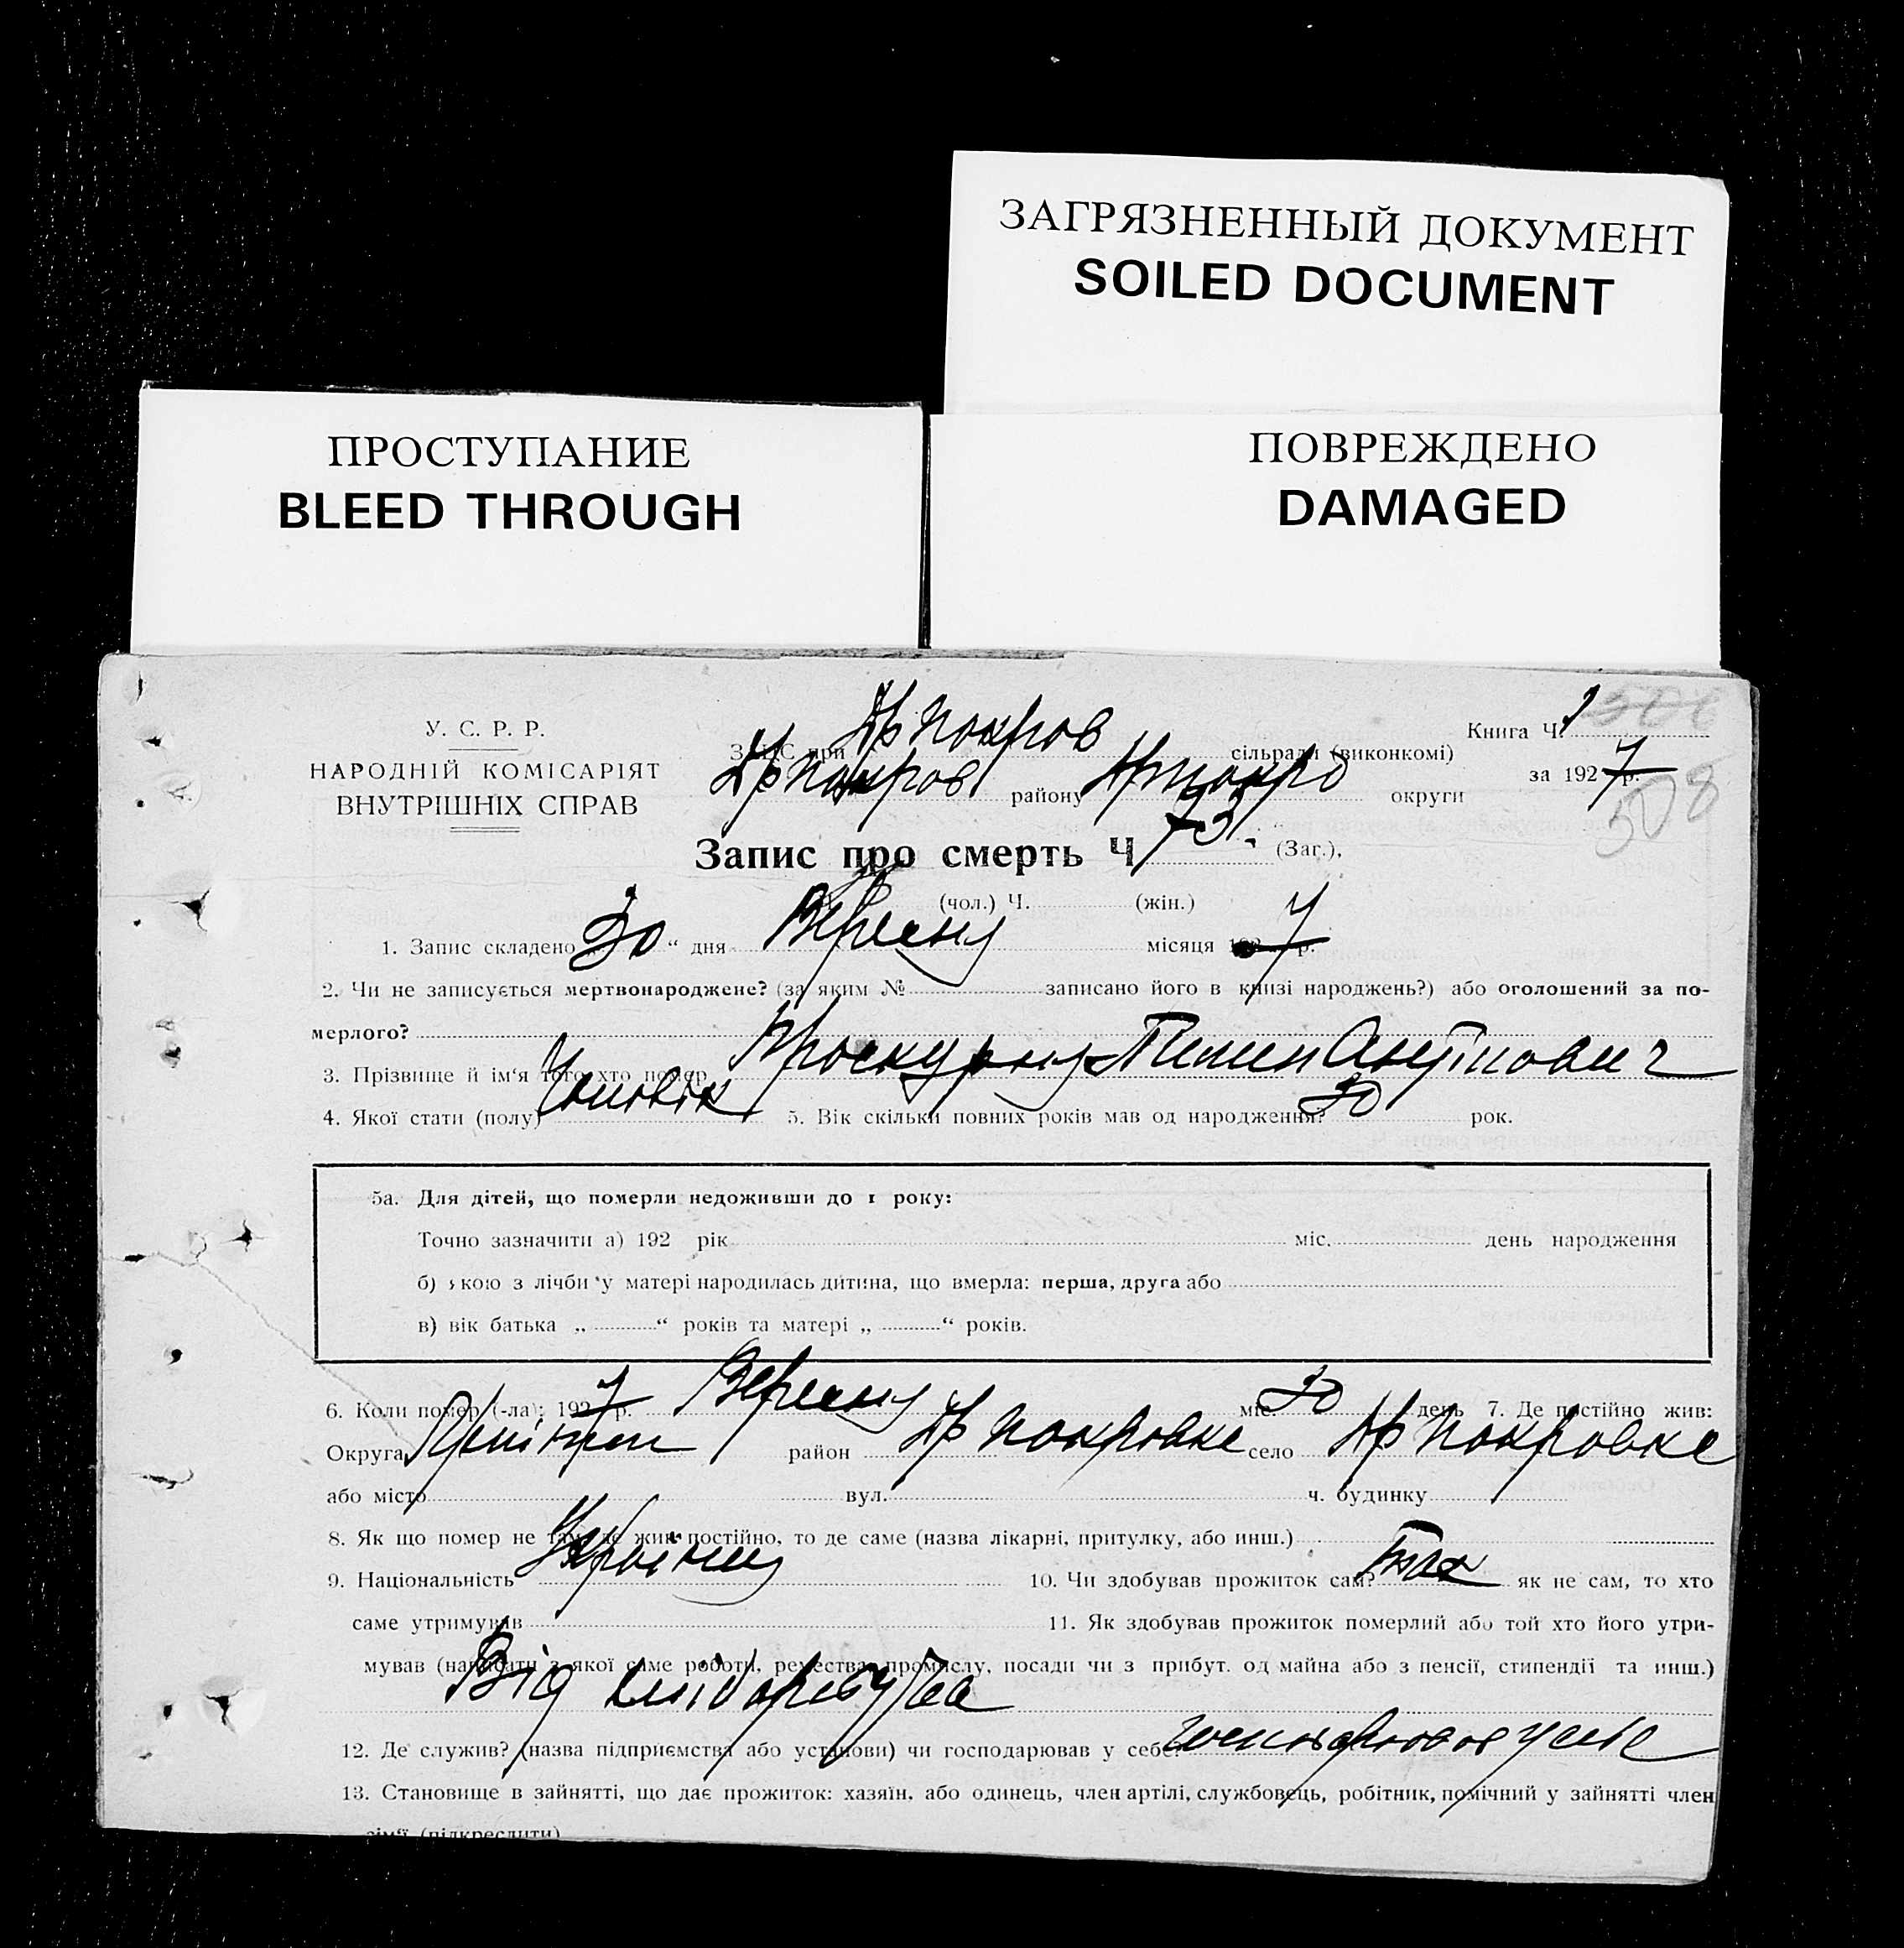 ЗАГРЯЗНЕННЫЙ ДОКУМЕНТ
SOILED DOCUMENT
ПРОСТУПАНИЕ
BLEED THROUGH
ПОВРЕЖДЕНО
DAMAGED
У. С. Р. Р.
НАРОДНІЙ КОМІСАРІЯТ
ВНУТРІШНІХ СПРАВ
ЗАГС при сільраді (виконкомі)
району округи
Книга Ч. 1
за 1927 р.
508
Запис про смерть Ч 73. (Заг.),
(чол.) Ч. (жін.)
1. Запис складено „30“ дня Вересня місяця 1927 р.
2. Чи не записується мертвонароджене? (за яким № записано його в книзі народжень?) або оголошений за по-
мерлого?
3. Прізвище й ім'я того хто помер Проскурня Пимен Антонович
4. Якої стати (полу) Чоловік 5. Вік скільки повних років мав од народження? 30 рок.
5а. Для дітей, що померли недоживши до 1 року:
Точно зазначити а) 192 рік міс. день народження
б) якою з лічби у матері народилась дитина, що вмерла: перша, друга або
в) вік батька „ “ років та матері „ “ років.
6. Коли помер (-ла): 1927 р. Вересня міс. 30 день 7. Де постійно жив:
Округа район Покровке село Покровке
або місто вул. ч. будинку
8. Як що помер не там, де жив постійно, то де саме (назва лікарні, притулку, або инш.)
9. Національність 10. Чи здобував прожиток сам? так як не сам, то хто
саме утримував 11. Як здобував прожиток померлий або той хто його утри-
мував (написати з якої саме роботи, ремества, промислу, посади чи з прибут. од майна або з пенсії, стипендії та инш.)
Від хліборобства
12. Де служив? (назва підприємства або установи) чи господарював у себе?
13. Становище в зайнятті, що дає прожиток: хазяїн, або одинець, член артілі, службовець, робітник, помічний у зайнятті член
сім'ї (підкреслити)